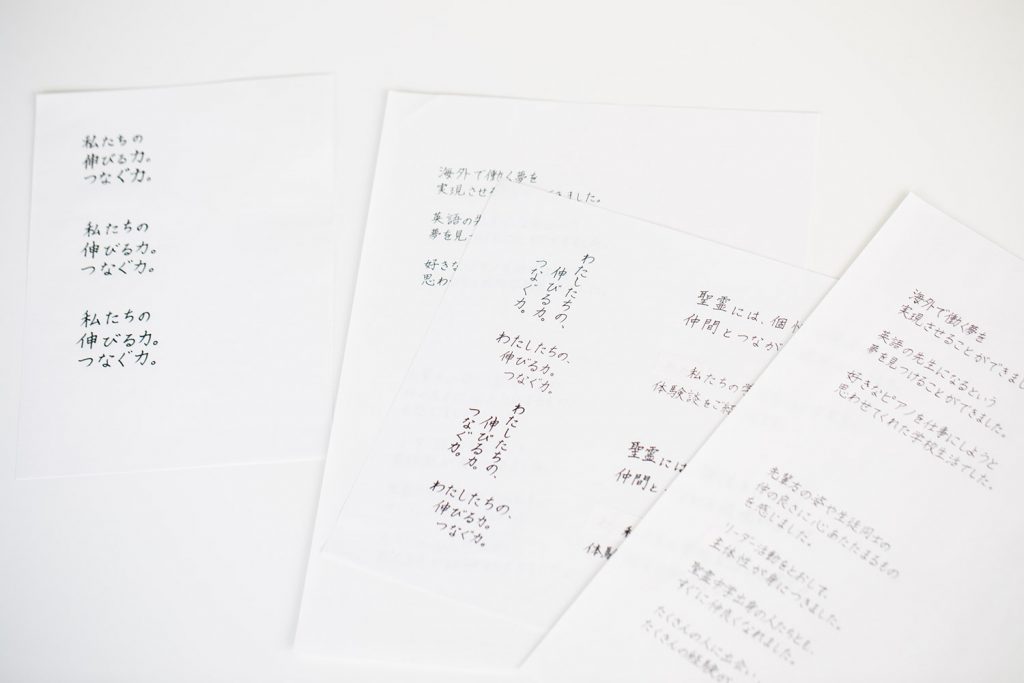 私たちの
伸びる力。
つなぐ力。
私たちの
伸びる力。
つなぐ力。
私たちの
伸びる力。
つなぐ力。
海外で働く夢を
実現させ
きました。
英語の
夢を見つ
好きな
思わ
わたしたちの、
伸びる力。
つなぐ力。
わたしたちの、
伸びる力。
つなぐ力。
わたしたちの、
伸びる力。
つなぐ力。
わたしたちの、
伸びる力。
つなぐ力。
聖霊には、個性
仲間とつなが
私たちの学
体験談をご紹
聖霊には
仲間と
体験
海外で働く夢を
実現させることができまし
英語の先生になるという
夢を見つけることができました。
好きなピアノを仕事にしようと
思わせてくれた学校生活でした。
先輩方の姿や生徒同士の
仲の良さに心あたたまるもの
を感じました。
リーダー活動をとおして、
主体性が身につきました。
聖霊中学出身の人たちとも、
すぐに仲良くなれました。
たくさんの人に出会い、
たくさんの経験が